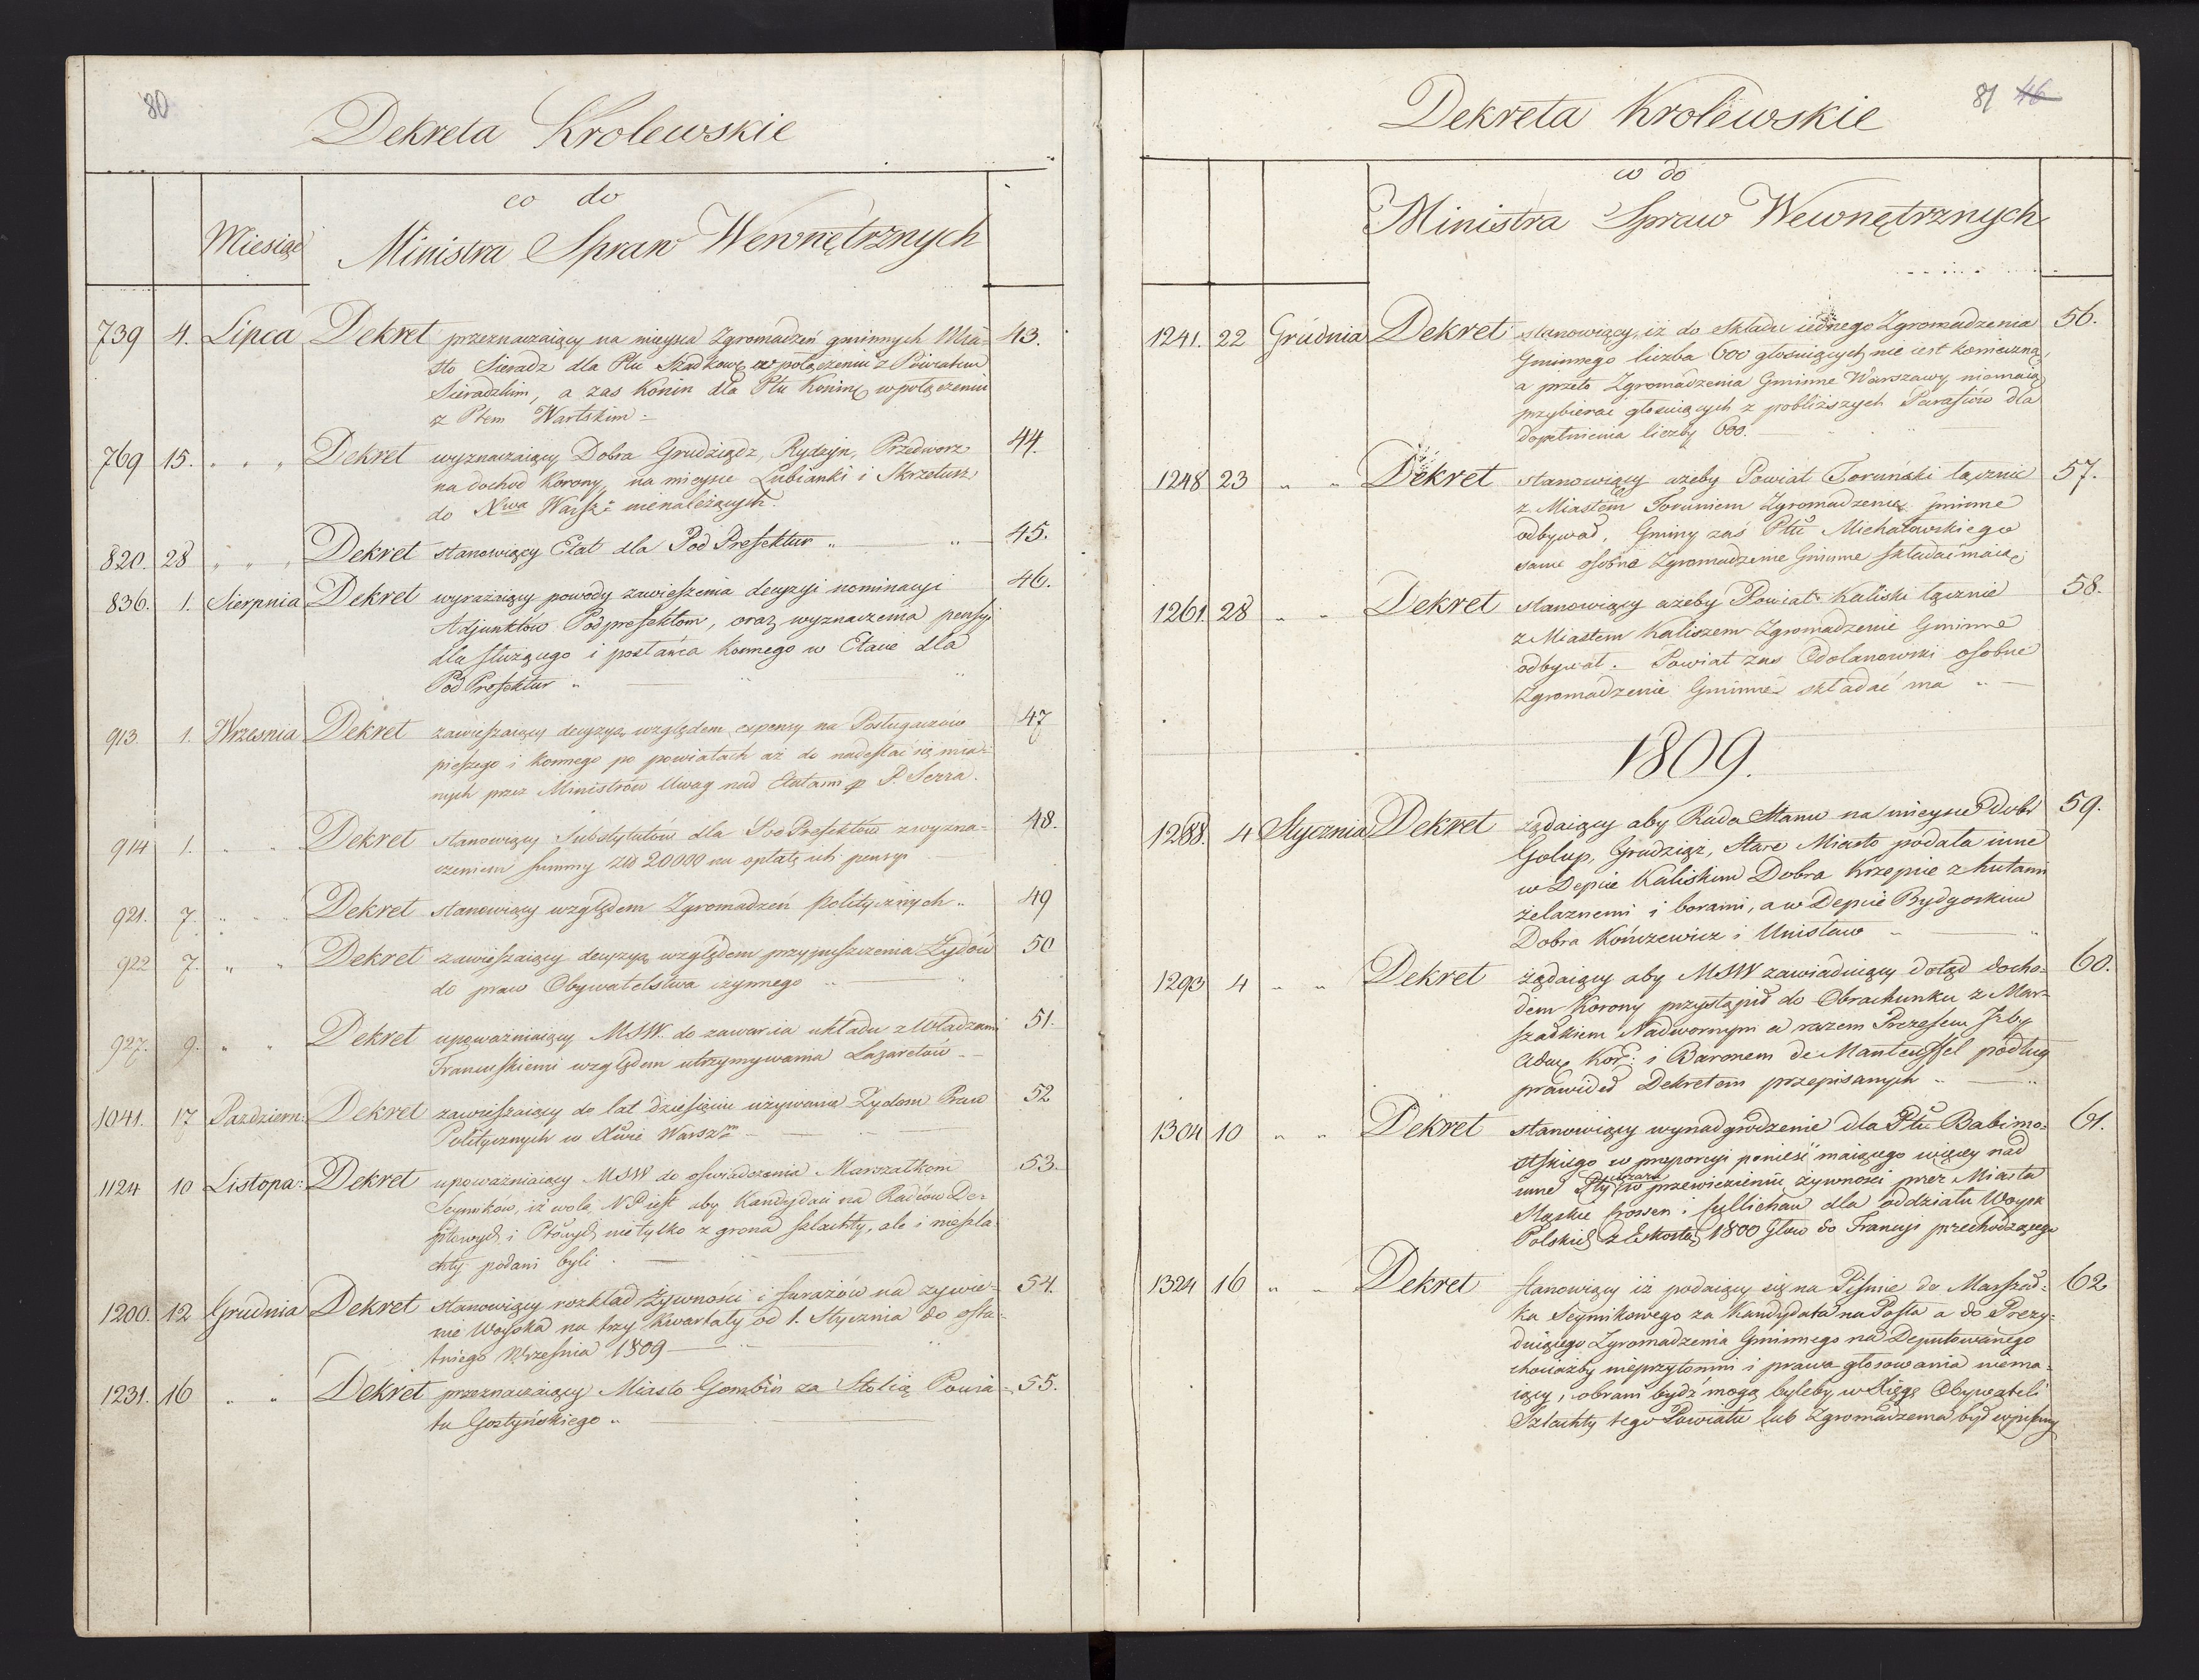 80
Dekreta Krolewskie
co do
Miesiąc Ministra Spraw Wewnętrznych
739 4. Lipca Dekret przeznaczaiący na mieysca Zgromadzeń gminnych Mia- 43.
sto Sieradz dla Ptu Szadkowę w połączeniu z Powiatem
Sieradzkim, a zas Konin dla Ptu Koninę w połączeniu
z Ptem Wartskim
769 15. " " " Dekret wyznaczaiący Dobra Grudziądz, Rydzyn, Przedworz 44.
na dochod Korony, na mieysce Lubianki i Skrzetusz
do Xwa Warsz: nienależących.
820. 28 " " " Dekret stanowiący Etat dla Pod Prefektur " " 45.
836. 1. Sierpnia Dekret wyrażaiący powody zawieszenia decyzyi nominacyi 46.
Adjunktow Podprefektom, oraz wyznaczenia pensyi
dla służącego i posłańca konnego w Etacie dla
Pod Prefektur "
913. 1. Wrzesnia Dekret zawieszaiący decyzyą względem expensy na Posługaczow 47
pieszego i konnego po powiatach aż do nadesłać się mia-
nych przez Ministrów Uwag nad Etatami p P. Serra.
914 1. " " Dekret stanowiący Substytutów dla Pod Prefektów z wyzna- 48.
czeniem summy zło 20000 na opłatę ich pensyi
921. 7. " " Dekret stanowiący względem Zgromadzeń politycznych " 49
922 7. " " Dekret zawieszaiący decyzyą względem przypuszczenia Żydów 50
do praw Obywatelstwa czynnego "
927. 9. " " Dekret upoważniaiący MSW. do zawarcia układu z Władzami 51.
Francuskiemi względem utrzymywania Lazaretów
1041. 17 Pazdziern: Dekret zawieszaiący do lat dziesięciu używanie Żydom Praw 52
Politycznych w Xtwie Warszm
1124 10 Listopa: Dekret upoważniaiący MSW do oświadczenia Marszałkom 53.
Seymików, iż wolą N. P. iest aby Kandydaci na Radców De-
ptowych i Ptowych nie tylko z grona szlachty, ale i nieszla-
chty podani byli
1200. 12 Grudnia Dekret stanowiący rozkład żywności i furażów na żywie- 54.
nie Woyska na trzy kwartały od 1. Stycznia do osta-
tniego Wrzesnia 1809
1231. 16 " " Dekret przeznaczaiący Miasto Gombin za Stolicę Powia- 55.
tu Gostyńskiego "
81 46
Dekreta Krolewskie
co do
Ministra Spraw Wewnętrznych
1241. 22 Grudnia Dekret stanowiący, iż do składu iednego Zgromadzenia 56.
Gminnego liczba 600 głosuiących nie iest konieczną,
a przeto Zgromadzenia Gminne Warszawy niemaią
przybierać głosuiących z pobliższych Parafiów dla
dopełnienia liczby 600.
1248 23 " " Dekret stanowiący ażeby Powiat Toruński łącznie 57.
z Miastem Toruniem Zgromadzenie gminne
odbywał, Gminy zaś Ptu Michałowskiego
same osobne Zgromadzenie Gminne składać maią
1261. 28 " " Dekret stanowiący ażeby Powiat Kaliski łącznie 58.
z Miastem Kaliszem Zgromadzenie Gminne
odbywał. Powiat zas Odolanowski osobne
Zgromadzenie Gminne składać ma "
1809.
1288. 4 Stycznia Dekret żądaiący aby Rada Stanu na mieysce Dobr 59.
Golup, Grudziąz, Stare Miasto podała inne
w Depcie Kaliskim Dobra Krzepice z hutami
żelaznemi i borami, a w Depcie Bydgoskim
Dobra Kończewicz i Unisław "
1293 4 " " Dekret żądaiący aby MSW zawiaduiący dotąd docho- 60.
dem Korony przystąpił do Obrachunku z Mar-
szałkiem Nadwornym a razem Prezesem Izby
Admę Kor: i Baronem de Manteuffel podług
prawideł Dekretem przepisanych "
1304 10 " " Dekret stanowiący wynadgrodzenie dla Ptu Babimo- 61.
stskiego w proporcyi ponieść maiącego więcey nad
inne Pty w przewiezieniu żywności przez Miasta
Crossen i Sullichau dla oddziału Woysk
Polskich 1800 Głow do Francyi przechodzącego
1324 16 " " Dekret stanowiący iż podaiący się na Piśmie do Marszał- 62.
ka Seymikowego za Kandydata na Posła a do Prezy-
duiącego Zgromadzenia Gminnego na Deputowanego
chociażby nieprzytomni i prawa głosowania niema-
iący, obrani bydź mogą byleby w Xięgę Obywateli
Szlachty tego Powiatu lub Zgromadzenia był wpisany